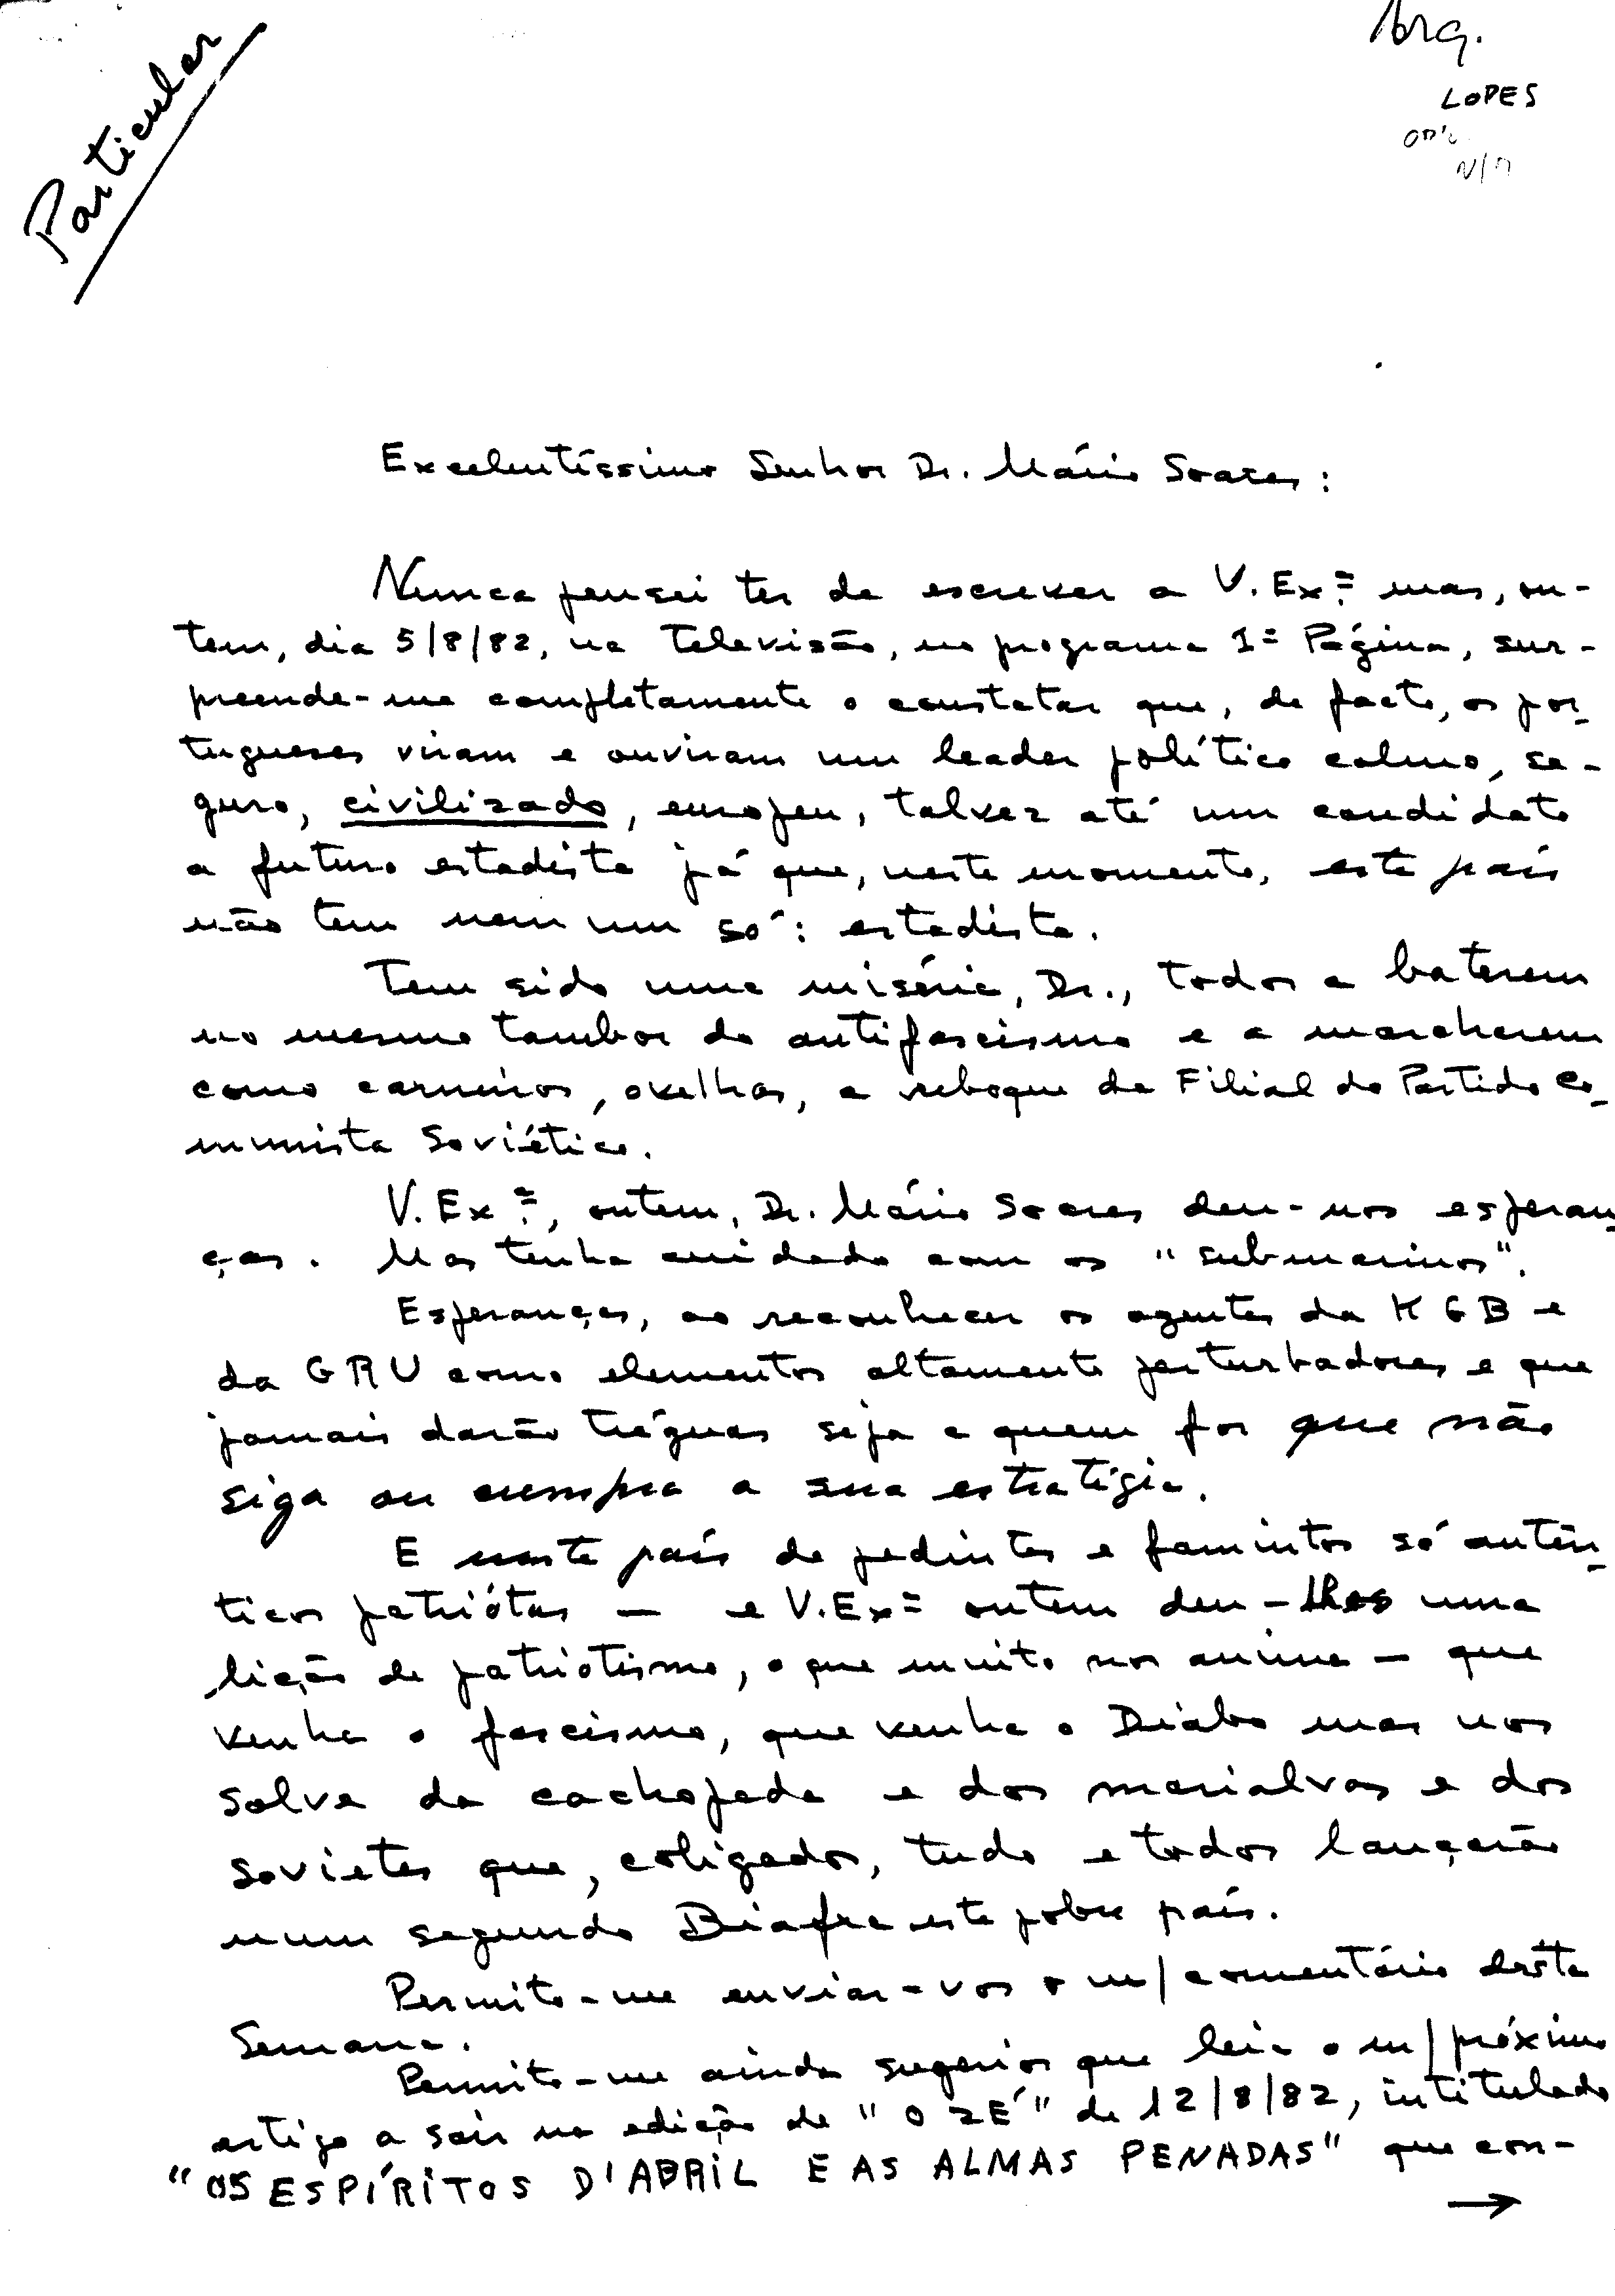 Particular
Arq.
LOPES
Excelentíssimo Senhor Dr. Mário Soares:
Nunca pensei ter de escrever a V. Exª mas, on-
tem, dia 5/8/82, na televisão, no programa 1ª Página, sur-
preende-me completamente o constatar que, de facto, os por-
tugueses viram e ouviram um leader político calmo, se-
guro, civilizado, europeu, talvez até um candidato
a futuro estadista já que, neste momento, este país
não tem nem um só: estadista.
Tem sido uma miséria, Dr., todos a baterem
no mesmo tambor do antifascismo e a marcharem
como carneiros, ovelhas, a reboque da Filial do Partido Co-
munista Soviético.
V. Exª, ontem, Dr. Mário Soares deu-nos esperan-
ças. Mas tenha cuidado com os "submarinos".
Esperanças, ao reconhecer os agentes da KGB e
da GRU como elementos altamente perturbadores e que
jamais darão tréguas seja a quem for que não
siga ou cumpra a sua estratégia.
E neste país de pedintes e famintos só autên-
ticos patriótas — e V. Exª ontem deu-lhes uma
lição de patriotismo, o que muito nos anima — que
venha o fascismo, que venha o Diabo mas nos
salve da cachopada e dos marialvas e dos
sovietes que, coligados, tudo e todos lançarão
num segundo Biafra este pobre país.
Permito-me enviar-vos o m/ comentário desta
Semana.
Permito-me ainda sugerir que leia o m/ próximo
artigo a sair na edição de "O ZÉ" de 12/8/82, intitulado
"OS ESPÍRITOS D'ABRIL E AS ALMAS PENADAS" que con-
→